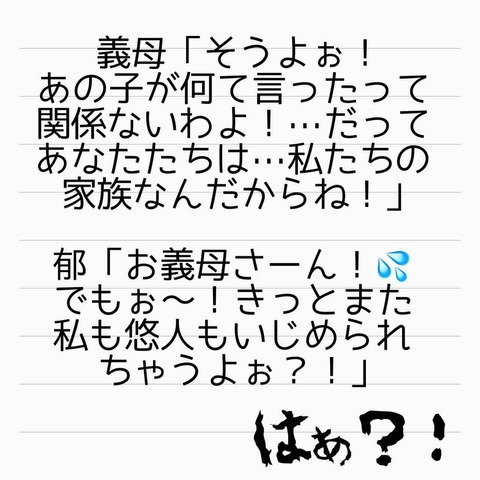 義母「そうよぉ！
あの子が何て言ったって
関係ないわよ！…だって
あなたたちは…私たちの
家族なんだからね！」
郁「お義母さーん！💦
でもぉ〜！きっとまた
私も悠人もいじめられ
ちゃうよぉ？！」
はぁ？！